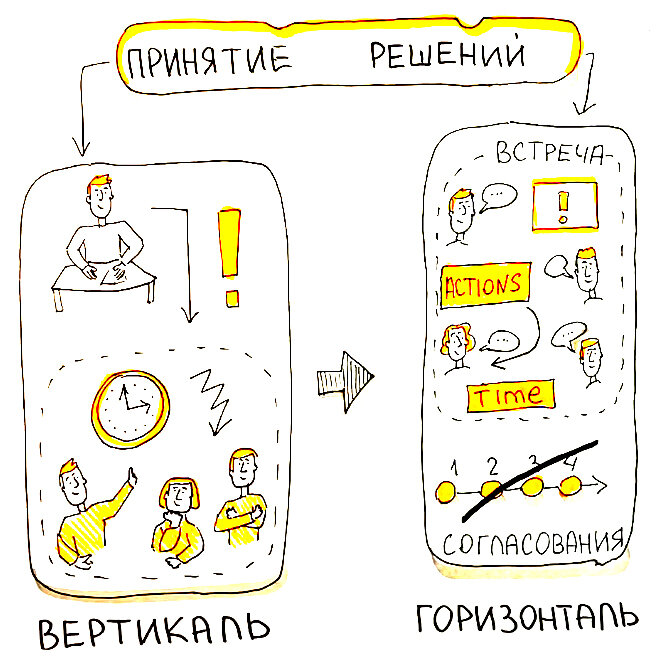 ПРИНЯТИЕ РЕШЕНИЙ
!
ВЕРТИКАЛЬ
ВСТРЕЧА
!
ACTIONS
Time
1 2 3 4
СОГЛАСОВАНИЯ
ГОРИЗОНТАЛЬ